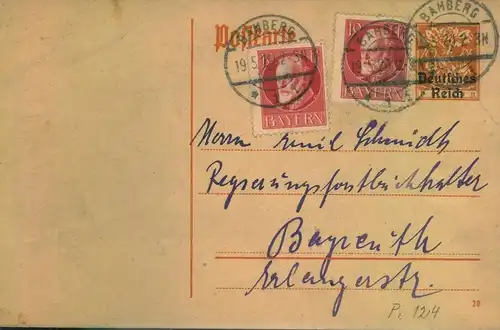 Postkarte
BAMBERG
19.5.
BAMBERG
BAMBERG
10
BAYERN
10
BAYERN
Deutsches
Reich
Herrn Emil Schmidt
Regierungsforstbuchhalter
Bayreuth
Erlangerstr.
20
P: 124